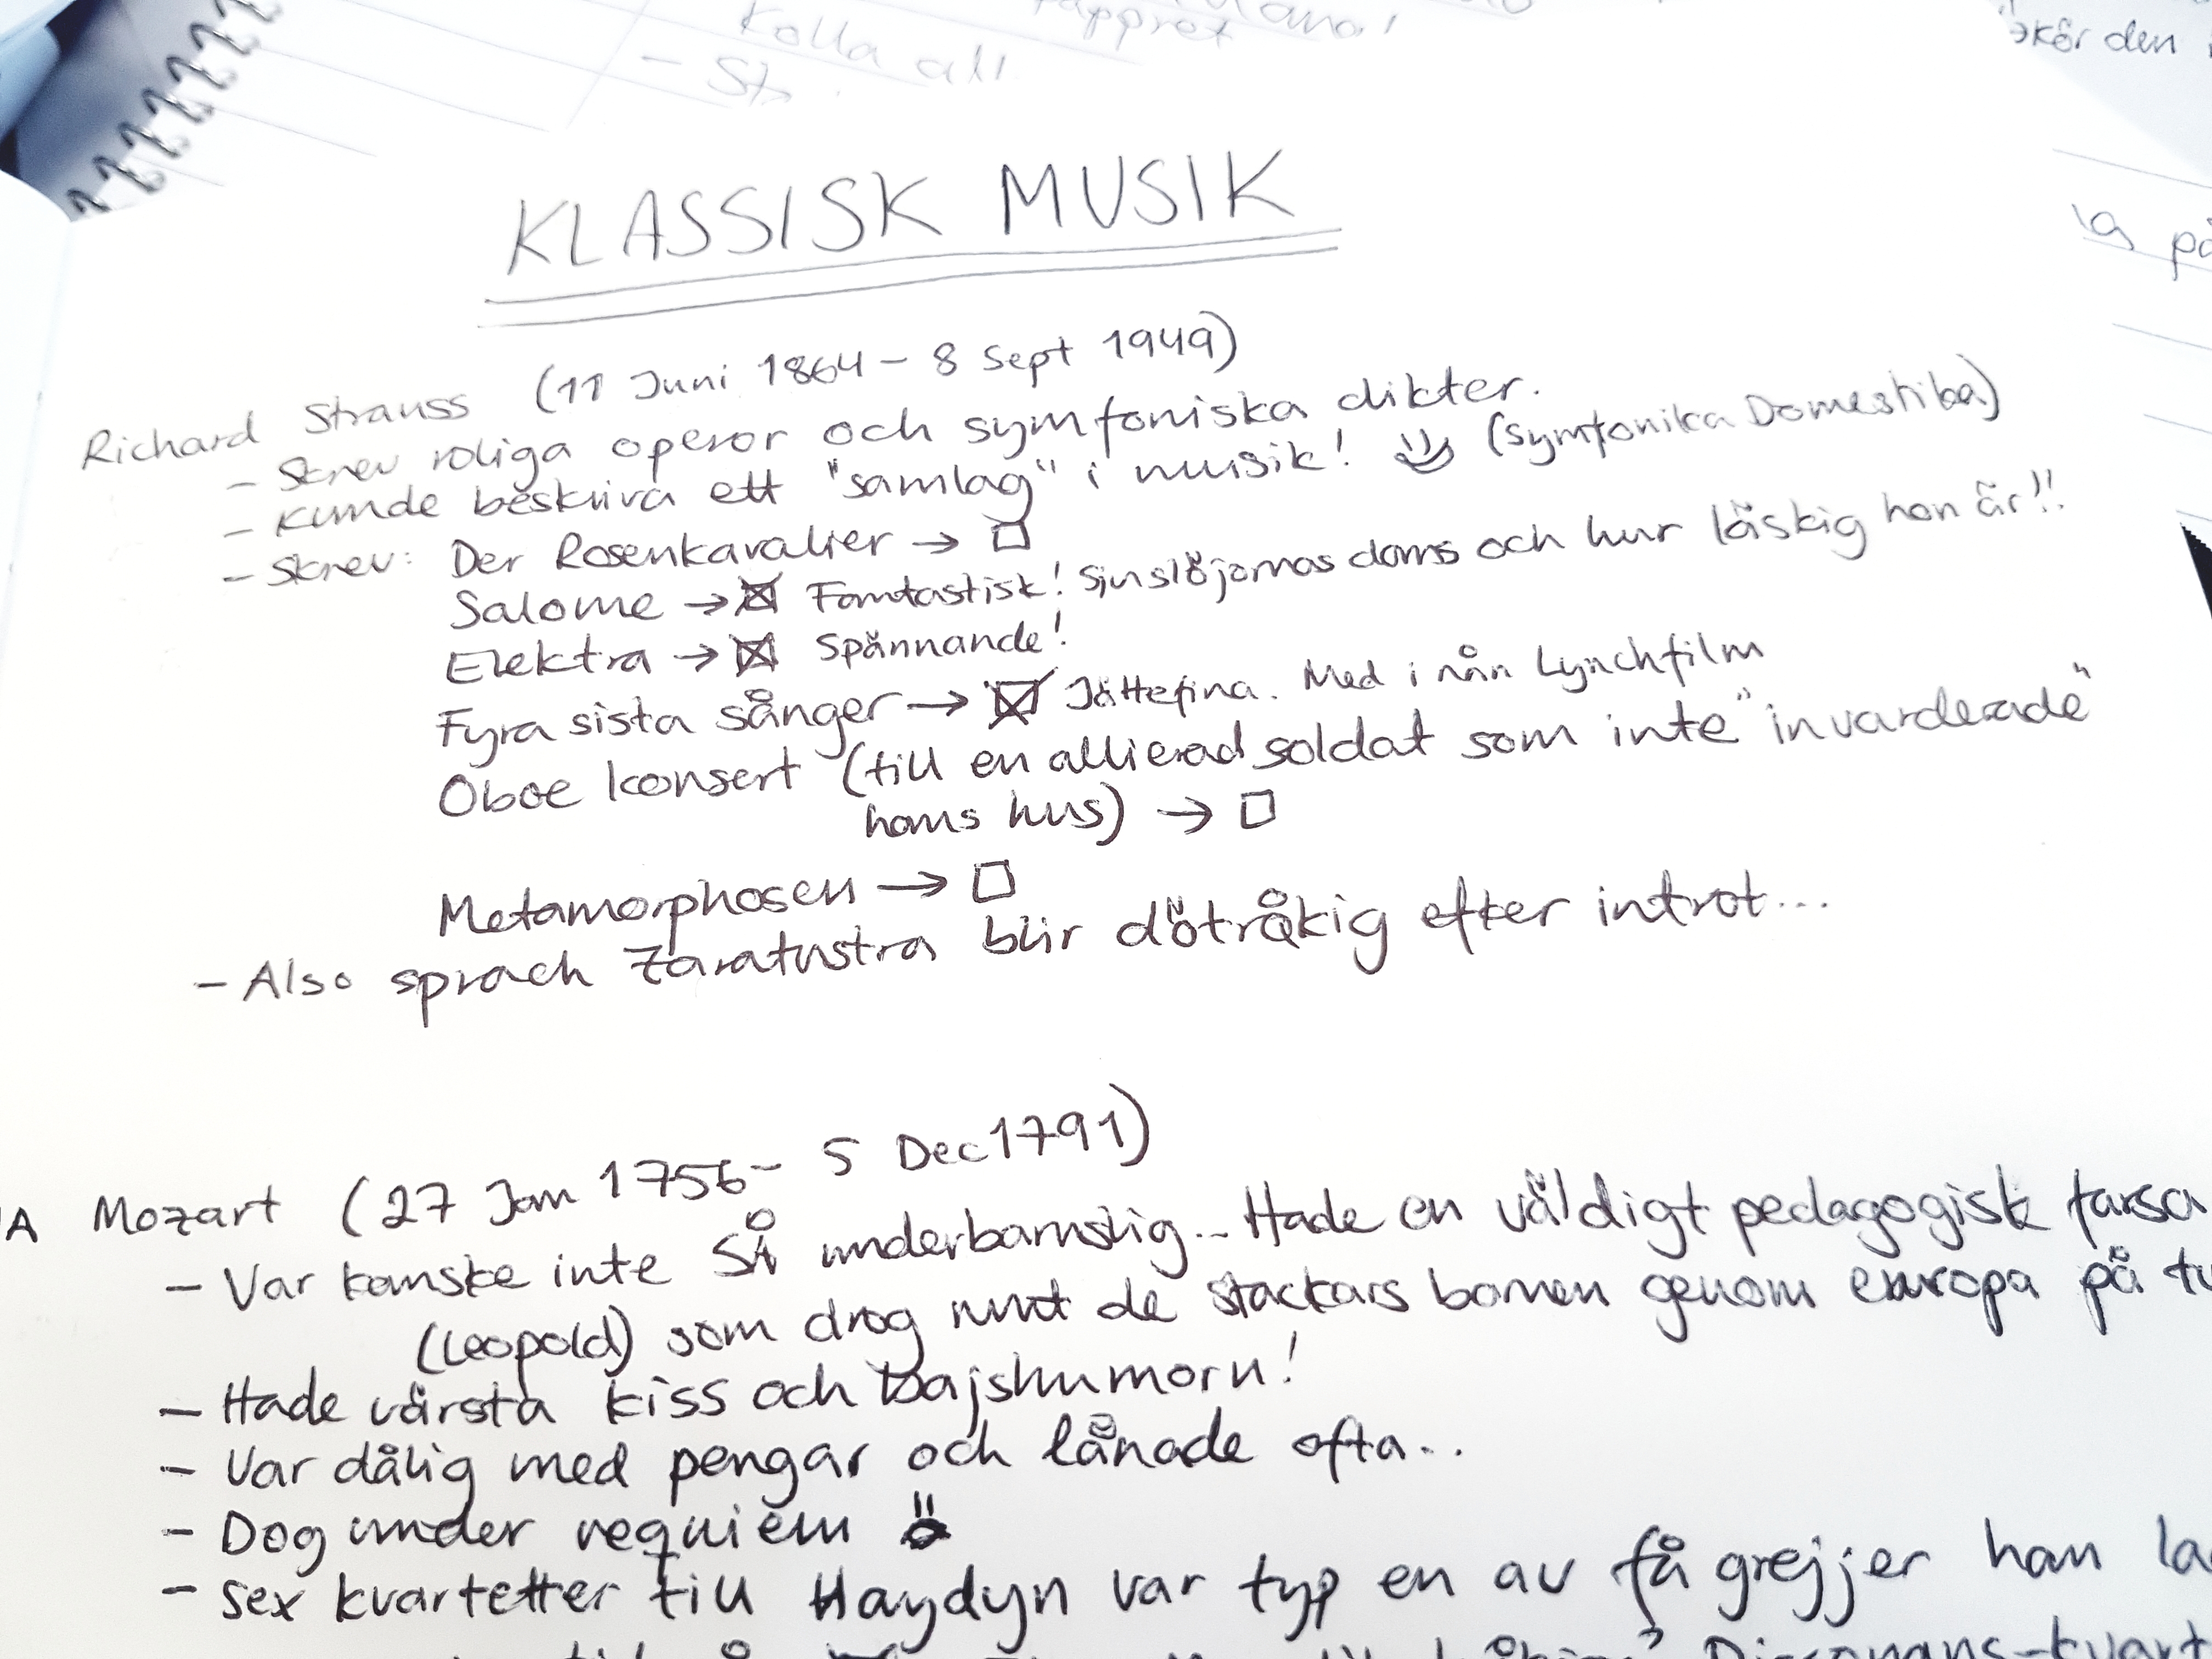 Kolla all
pappret
- St
kör den
på
KLASSISK MUSIK
Richard Strauss (11 Juni 1864 - 8 Sept 1949)
- Skrev roliga operor och symfoniska dikter.
- Kunde beskriva ett "samlag" i musik! (Symfonika Domestika)
- Skrev: Der Rosenkavalier → ☐
Salome → ☒ Fantastisk! Sjuslöjornas dans och hur läskig hon är!!
Elektra → ☒ Spännande!
Fyra sista sånger → ☒ Jättefina. Med i nån Lynchfilm
Oboe konsert (till en allierad soldat som inte "invarderade"
hans hus) → ☐
Metamorphosen → ☐
- Also sprach Zaratustra blir dötråkig efter introt...
A Mozart (27 Jan 1756 - 5 Dec 1791)
- Var kanske inte SÅ underbarnslig... Hade en väldigt pedagogisk farsa
(Leopold) som drog runt de stackars barnen genom europa på
- Hade värsta kiss och bajshumorn!
- Var dålig med pengar och lånade ofta..
- Dog under requiem
- Sex kvartetter till Haydyn var typ en av få grejjer han
Dissonans-kvart